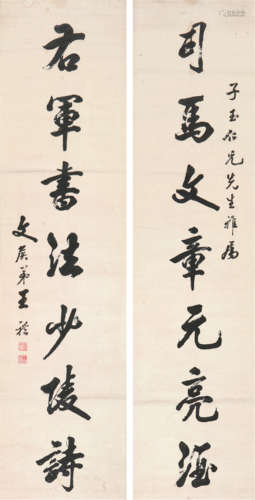 子玉仁兄先生雅属
司馬文章元亮酒
右軍書法少陵詩
文侯弟王